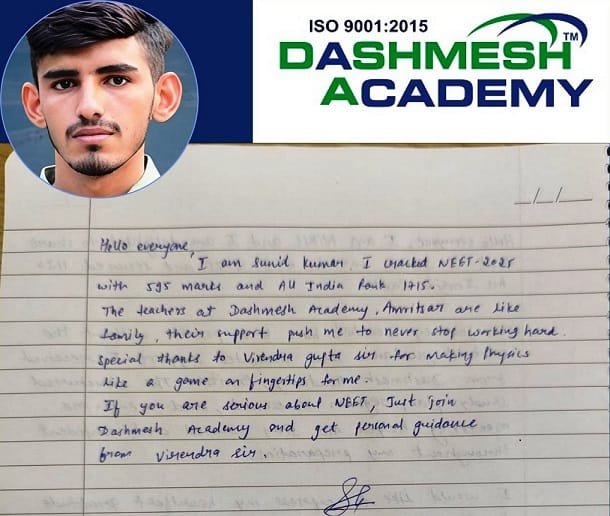 ISO 9001:2015
DASHMESH™
ACADEMY
_/_/_
Hello everyone,
I am Sunil Kumar, I cracked NEET-2025
with 595 marks and All India Rank 1715.
The teachers at Dashmesh Academy, Amritsar are like
family, their support push me to never stop working hard.
special thanks to Virendra gupta sir for making Physics
like a game on fingertips for me.
If you are serious about NEET, Just join
Dashmesh Academy and get personal guidance
from Virendra sir.